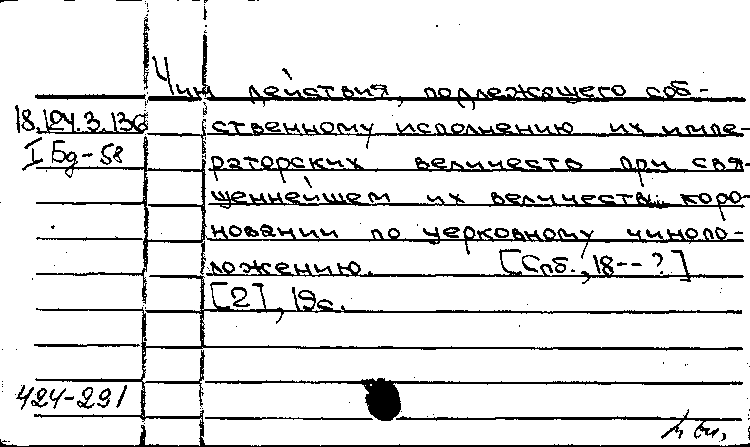 Чин действия, подлежащего соб-
18.124.3.136 ственному исполнению их импе-
I Бд-58 раторских величеств при свя-
щеннейшем их величеств коро-
новании по церковному чинопо-
ложению. [Спб., 18--?]
[2], 19с.
424-291